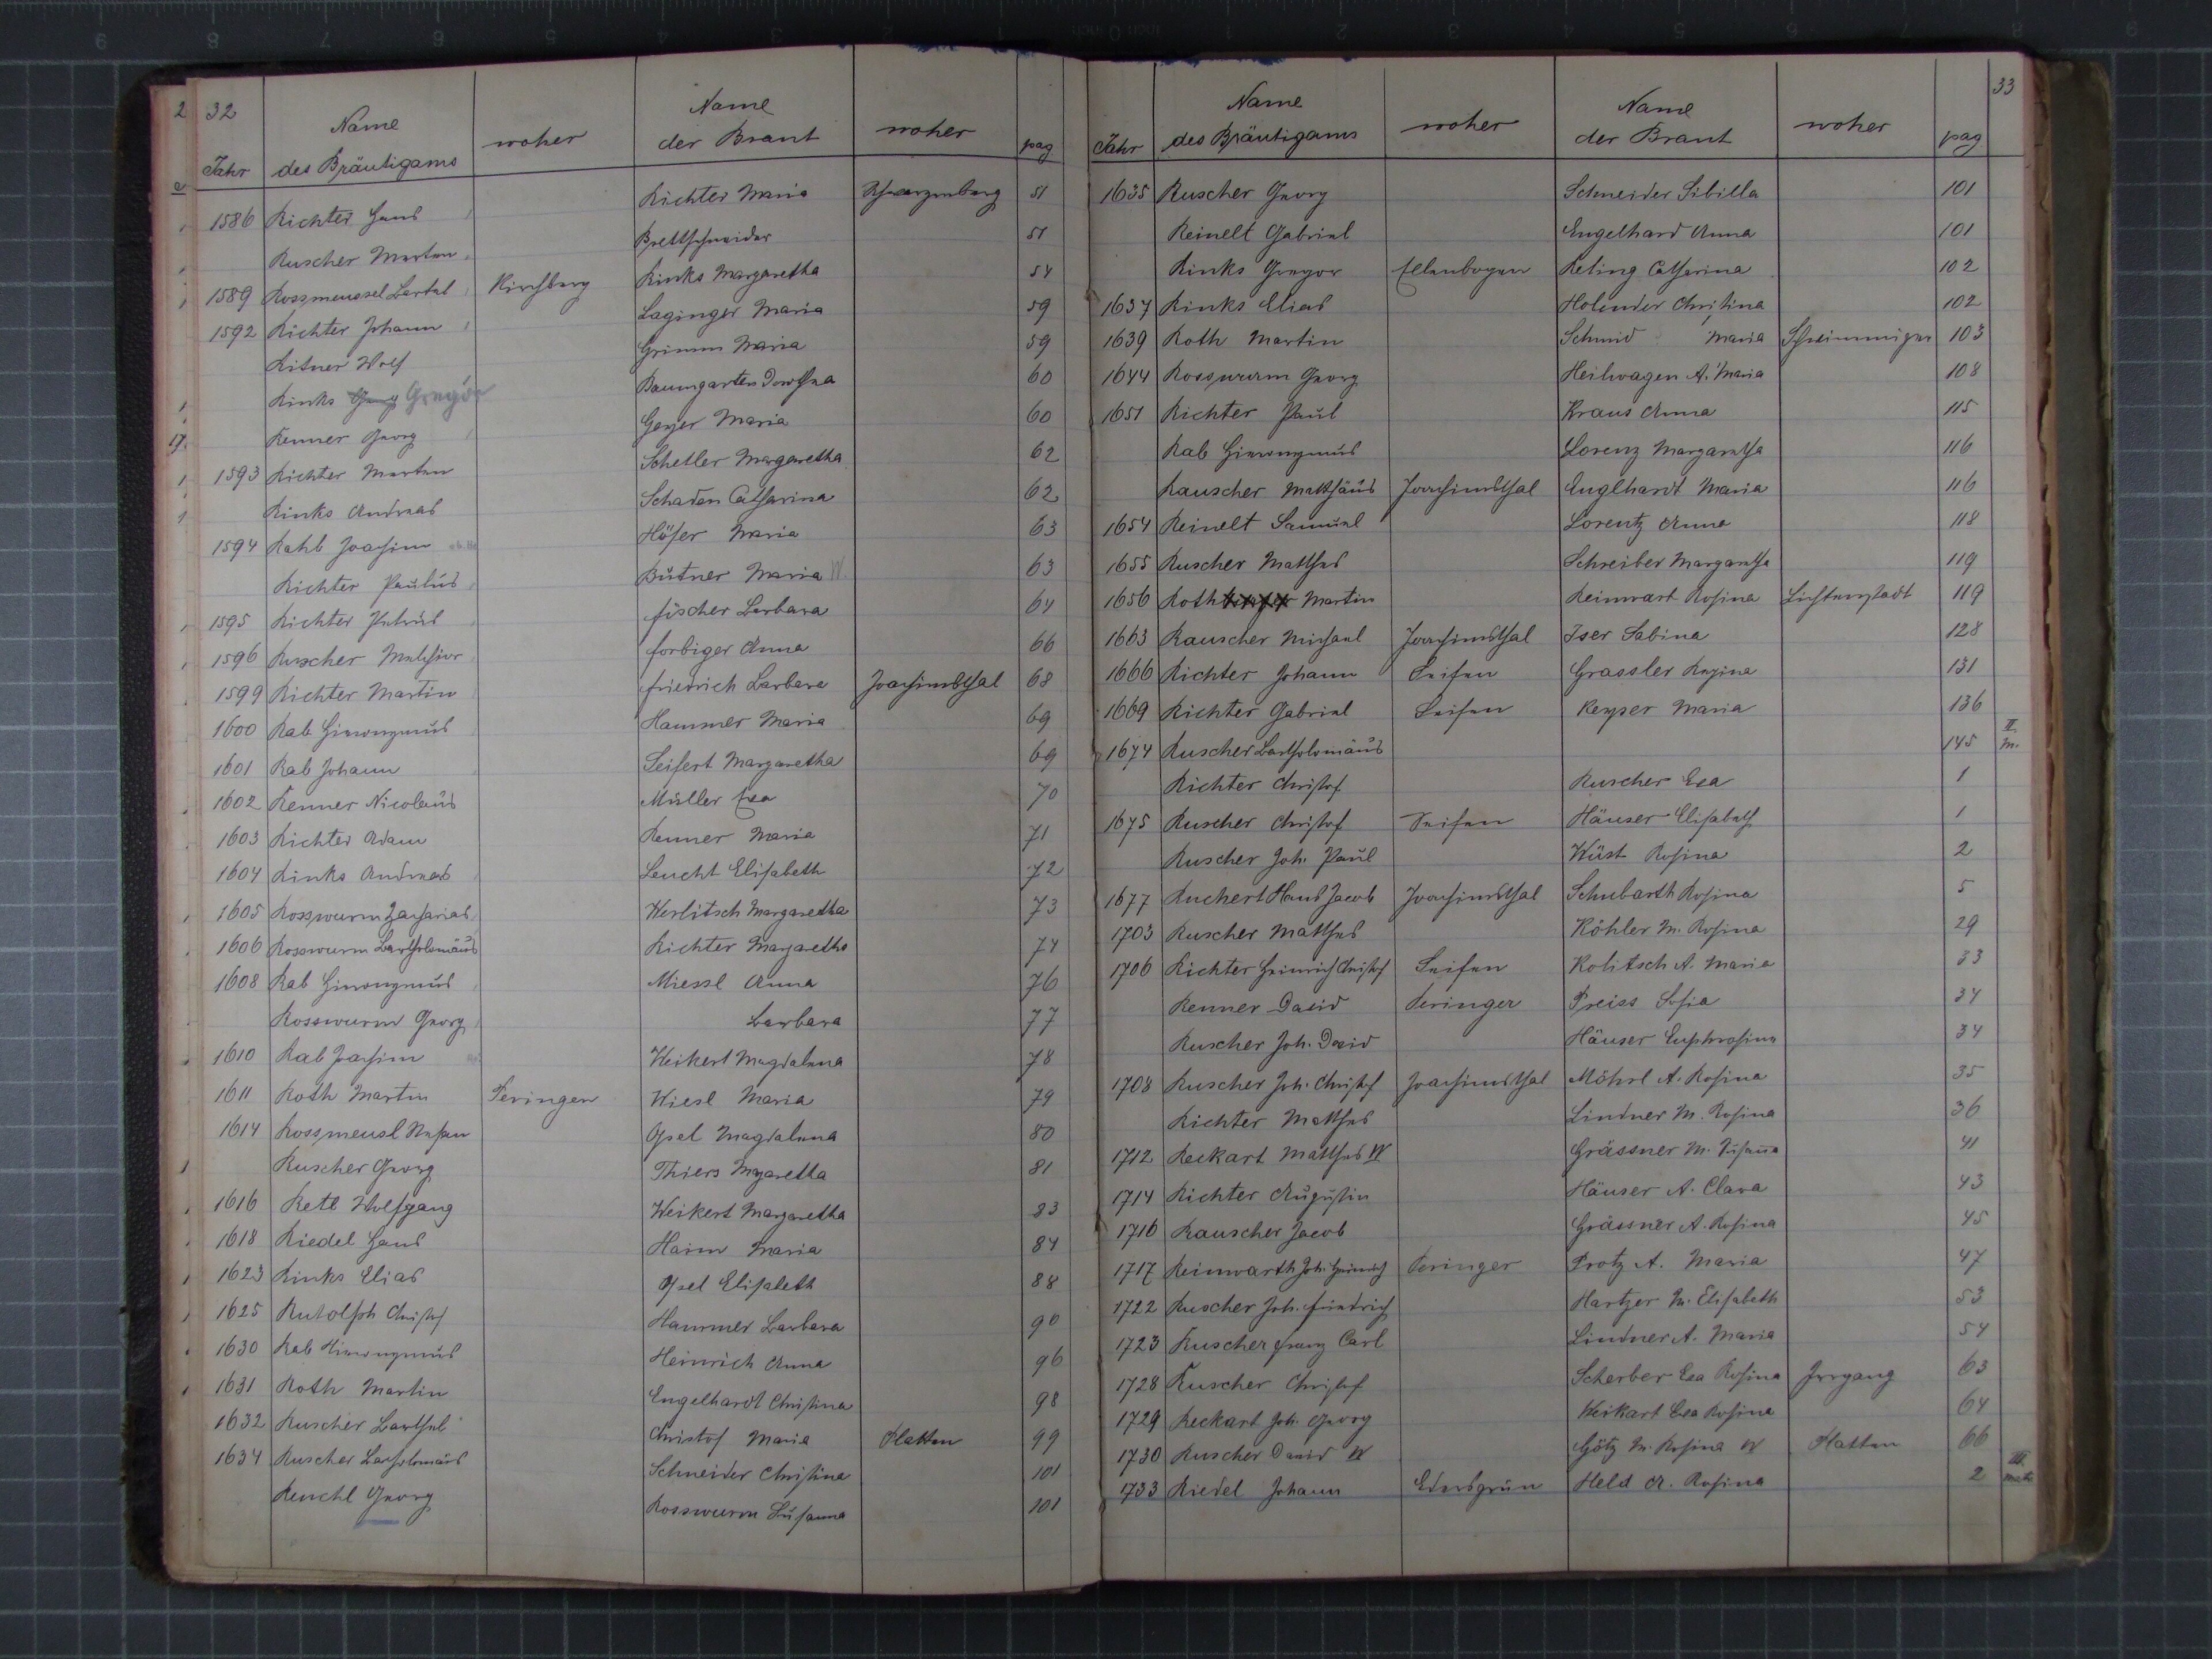 32
Jahr Name des Bräutigams woher Name der Braut woher pag
1586 Richter Hans Richter Maria Schwarzenberg 51
Ruscher Merten Brettschneider 51
1589 Rossmeussel Bartel Kirchberg Rinks Margaretha 54
1592 Richter Johann Laginger Maria 59
Ritner Wolf Grimm Maria 59
Rinks Georg Gregor Baumgarten Dorothea 60
Renner Georg Geyer Maria 60
1593 Richter Merten Schetler Margaretha 62
Rinks Andreas Schaden Catharina 62
1594 Rahb Joachim Höfer Maria 63
Richter Paulus Bütner Maria W. 63
1595 Richter Petrus Fischer Barbara 64
1596 Ruscher Melchior Forbiger Anna 66
1599 Richter Martin Friedrich Barbara Joachimsthal 68
1600 Rab Hieronymus Hammer Maria 69
1601 Rab Johann Seifert Margaretha 69
1602 Renner Nicolaus Müller Eva 70
1603 Richter Adam Renner Maria 71
1604 Rinks Andreas Leucht Elisabeth 72
1605 Rosswurm Zacharias Werlitsch Margaretha 73
1606 Rosswurm Bartholomäus Richter Margaretha 74
1608 Rab Hieronymus Miessl Anna 76
Rosswurm Georg Barbara 77
1610 Rab Joachim Weikert Magdalena 78
1611 Roth Martin Peringen Wiesl Maria 79
1614 Rossmeusl Stefan Opel Magdalena 80
Ruscher Georg Thiers Margaretha 81
1616 Retl Wolfgang Weikert Margaretha 83
1618 Riedel Hans Haim Maria 84
1623 Rinks Elias Opel Elisabeth 88
1625 Rudolph Christof Hammer Barbara 90
1630 Rab Hieronymus Heinrich Anna 96
1631 Roth Martin Engelhardt Christina 98
1632 Ruscher Barthel Christof Maria Platten 99
1634 Ruscher Bartholomäus Schneider Christina 101
Reuschl Georg Rosswurm Susanna 101
33
Jahr Name des Bräutigams woher Name der Braut woher pag
1635 Ruscher Georg Schneider Sibilla 101
Reinelt Gabriel Engelhard Anna 101
Rinks Gregor Ellenbogen Reting Catharina 102
1637 Rinks Elias Holender Christina 102
1639 Roth Martin Schmid Maria 103
1644 Rosswurm Georg Heilwagen A. Maria 108
1651 Richter Paul Kraus Anna 115
Rab Hieronymus Lorenz Margaretha 116
Rauscher Mathäus Joachimsthal Englhardt Maria 116
1654 Reinelt Samuel Lorentz Anna 118
1655 Ruscher Mathes Schreiber Margaretha 119
1656 Roth Martin Reinwart Rosina Lichtenstadt 119
1663 Rauscher Michael Joachimsthal Iser Sabina 128
1666 Richter Johann Seifen Grassler Regina 131
1669 Richter Gabriel Seifen Keyser Maria 136
1674 Ruscher Bartholomäus 145 II. M.
Richter Christof Ruscher Eva 1
1675 Ruscher Christof Seifen Häuser Elisabeth 1
Ruscher Joh. Paul Wüst Rosina 2
1677 Ruchert Hans Jacob Joachimsthal Schubarth Rosina 5
1703 Ruscher Mathes Köhler M. Rosina 29
1706 Richter Heinrich Christof Seifen Kolitsch A. Maria 33
Renner David Peringer Preiss Sofia 34
Ruscher Joh. David Häuser Euphrosina 34
1708 Ruscher Joh. Christof Joachimsthal Möhrl A. Rosina 35
Richter Mathes Lindner M. Rosina 36
1712 Reckart Mathes W Grässner M. Susana 41
1714 Richter Augustin Häuser A. Clara 43
1716 Rauscher Jacob Grässner A. Rosina 45
1717 Reinwarth Joh. Heinrich Peringer Protz A. Maria 47
1722 Ruscher Joh. Friedrich Hartzer M. Elisabeth 53
1723 Ruscher Franz Carl Lindner A. Maria 54
1728 Ruscher Christof Scherber Eva Rosina Irrgang 63
1729 Reckart Joh. Georg Weikart Eva Rosina 64
1730 Ruscher David W Götz M. Rosina W Platten 66
1733 Riedel Johann Edersgrün Held A. Rosina 2 III. Matr.